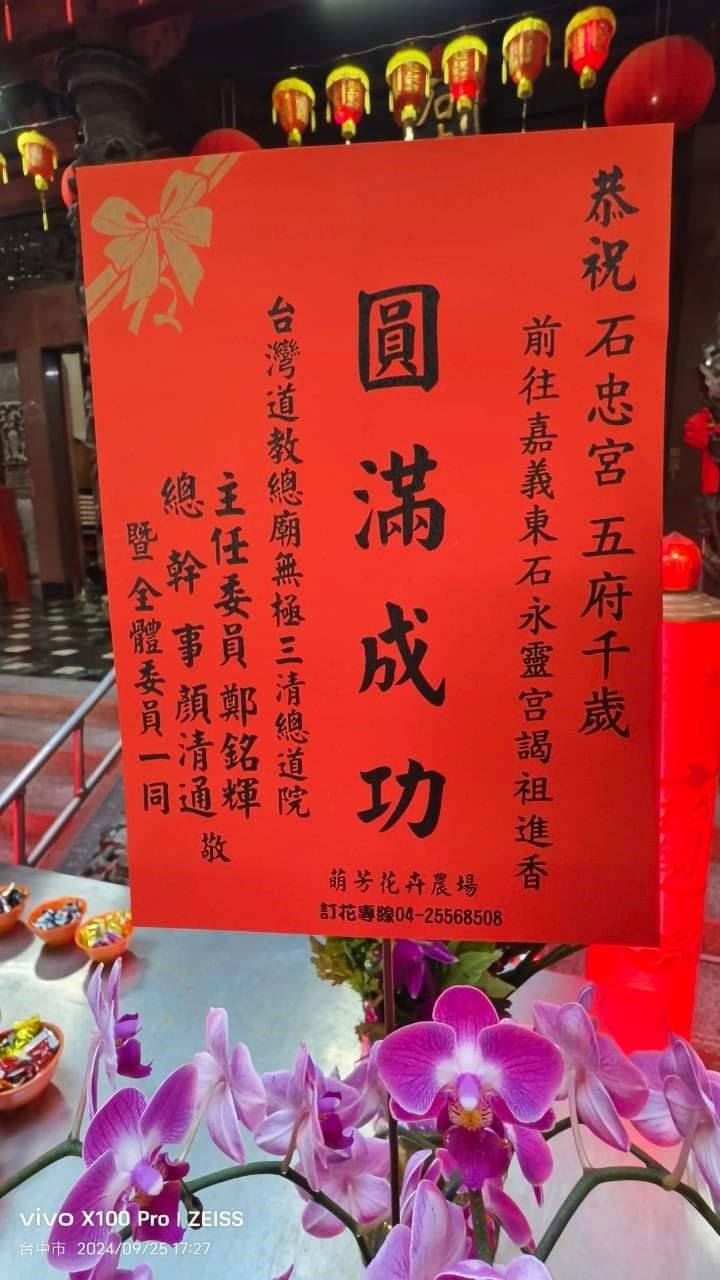 恭祝石忠宮 五府千歲
前往嘉義東石永靈宮謁祖進香
圓滿成功
台灣道教總廟無極三清總道院
主任委員 鄭銘輝
總幹事 顏清通
暨全體委員一同
敬
萌芳花卉農場
訂花專線04-25568508
vivo X100 Pro | ZEISS
台中市 2024/09/25 17:27